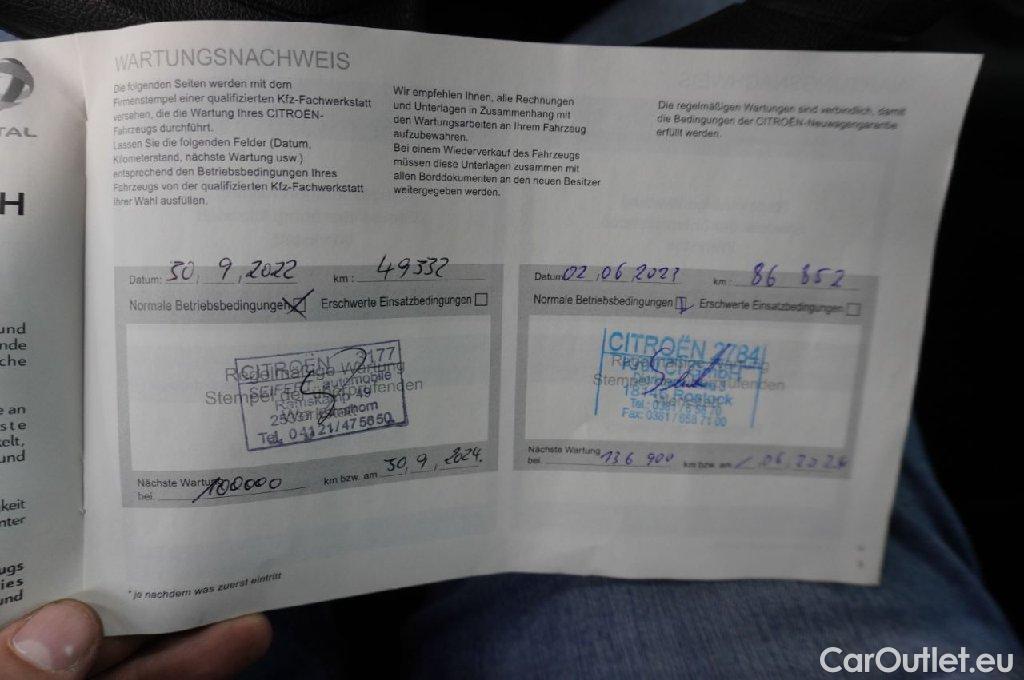 TAL
H
WARTUNGSNACHWEIS
Die folgenden Seiten werden mit dem
Firmenstempel einer qualifizierten Kfz-Fachwerkstatt
versehen, die die Wartung Ihres CITROËN-
Fahrzeugs durchführt.
Lassen Sie die folgenden Felder (Datum,
Kilometerstand, nächste Wartung usw.)
entsprechend den Betriebsbedingungen Ihres
Fahrzeugs von der qualifizierten Kfz-Fachwerkstatt
Ihrer Wahl ausfüllen.
Wir empfehlen Ihnen, alle Rechnungen
und Unterlagen in Zusammenhang mit
den Wartungsarbeiten an Ihrem Fahrzeug
aufzubewahren.
Bei einem Wiederverkauf des Fahrzeugs
müssen diese Unterlagen zusammen mit
allen Borddokumenten an den neuen Besitzer
weitergegeben werden.
Die regelmäßigen Wartungen sind verbindlich, damit
die Bedingungen der CITROËN-Neuwagengarantie
erfüllt werden.
Datum: 30. 9. 2022 km: 49332
Normale Betriebsbedingungen Erschwerte Einsatzbedingungen
CITROËN 3177
Regelmäßige Wartung
SEIFERT Automobile
Stempel der ausführenden
Ramskamp 49
Werkstatt
Tel. 04121/475650
Nächste Wartung
bei 100000 km bzw. am 30. 9. 2024.
Datum 02.06.2023 km: 86 852
Normale Betriebsbedingungen Erschwerte Einsatzbedingungen
CITROËN 2784
Regelmäßige Wartung
Stempel der ausführenden
Rostock
Nächste Wartung
bei 136 900 km bzw. am
* je nachdem was zuerst eintritt
und
nde
che
e an
ste
kelt,
und
keit
nter
ugs
ies
und
CarOutlet.eu